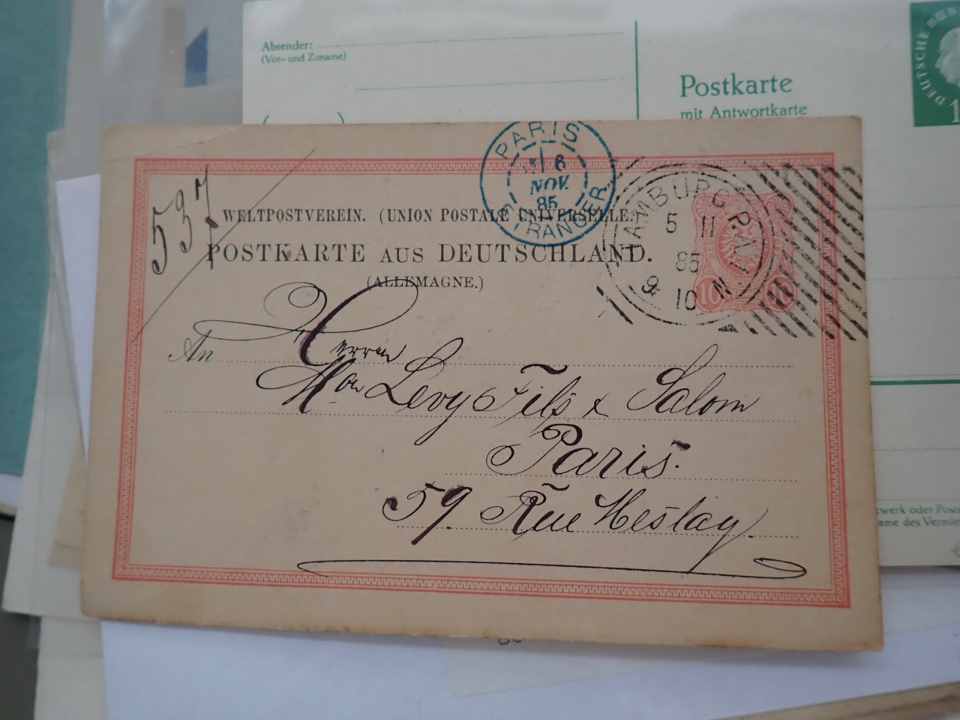 Absender:
(Vor- und Zuname)
Postkarte
mit Antwortkarte
DEUTSCHE
1
PARIS
6
NOV.
85
ETRANGER
HAMBURG
5 11
85
9 10 N
10
537
WELTPOSTVEREIN. (UNION POSTALE UNIVERSELLE.)
POSTKARTE AUS DEUTSCHLAND.
(ALLEMAGNE.)
An Herrn
Mon Levy Fils & Salom
Paris.
59. Rue Meslay